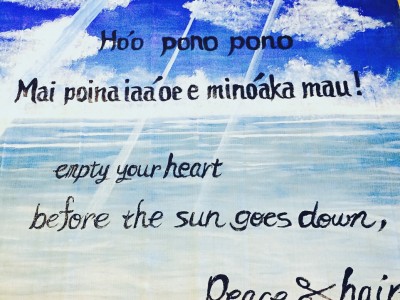 Hóo pono pono
Mai poina iaáoe e minoáka mau!
empty your heart
before the sun goes down,
Peace & hair